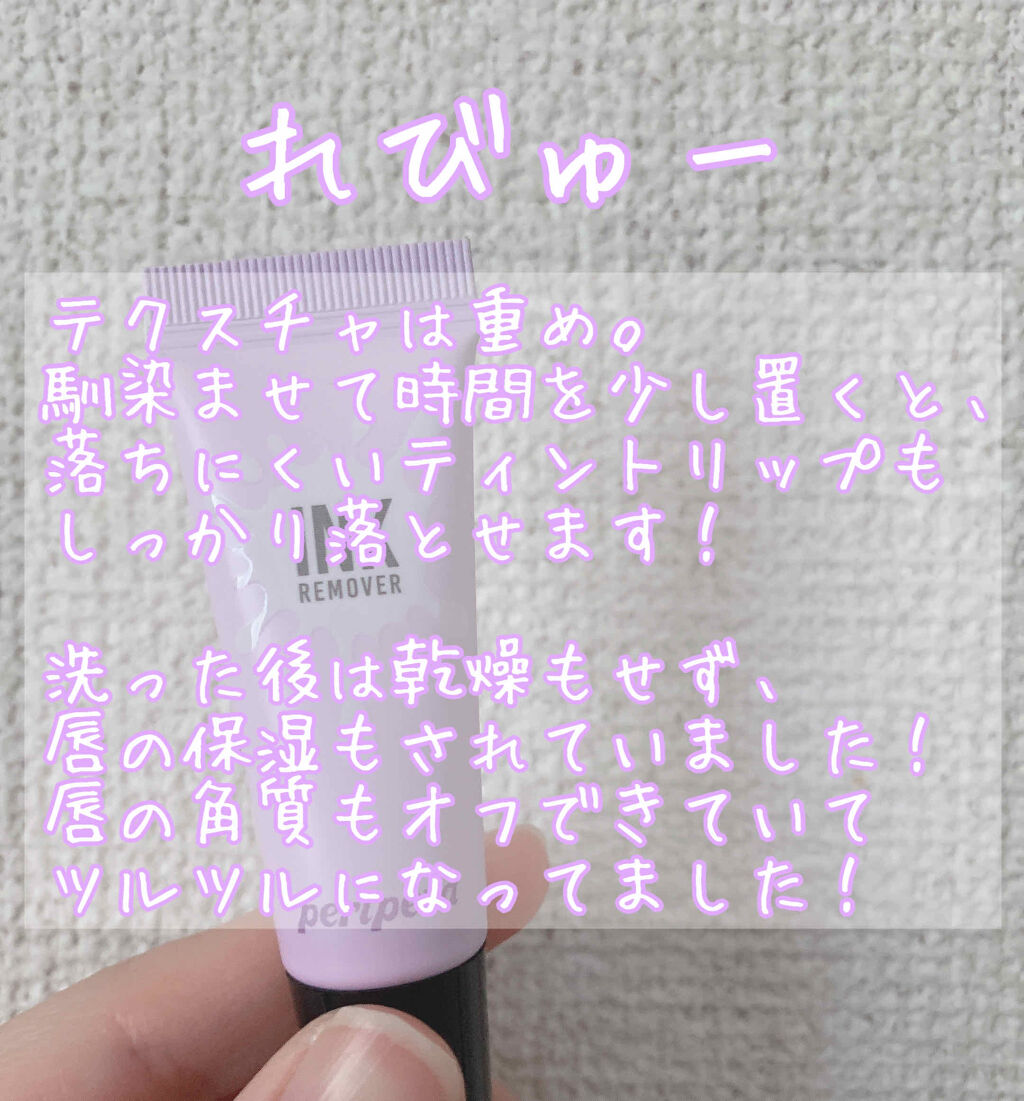 れびゅー
テクスチャは重め。
馴染ませて時間を少し置くと、
落ちにくいティントリップも
しっかり落とせます！
INK
REMOVER
洗った後は乾燥もせず、
唇の保湿もされていました！
唇の角質もオフできていて
ツルツルになってました！
peripera